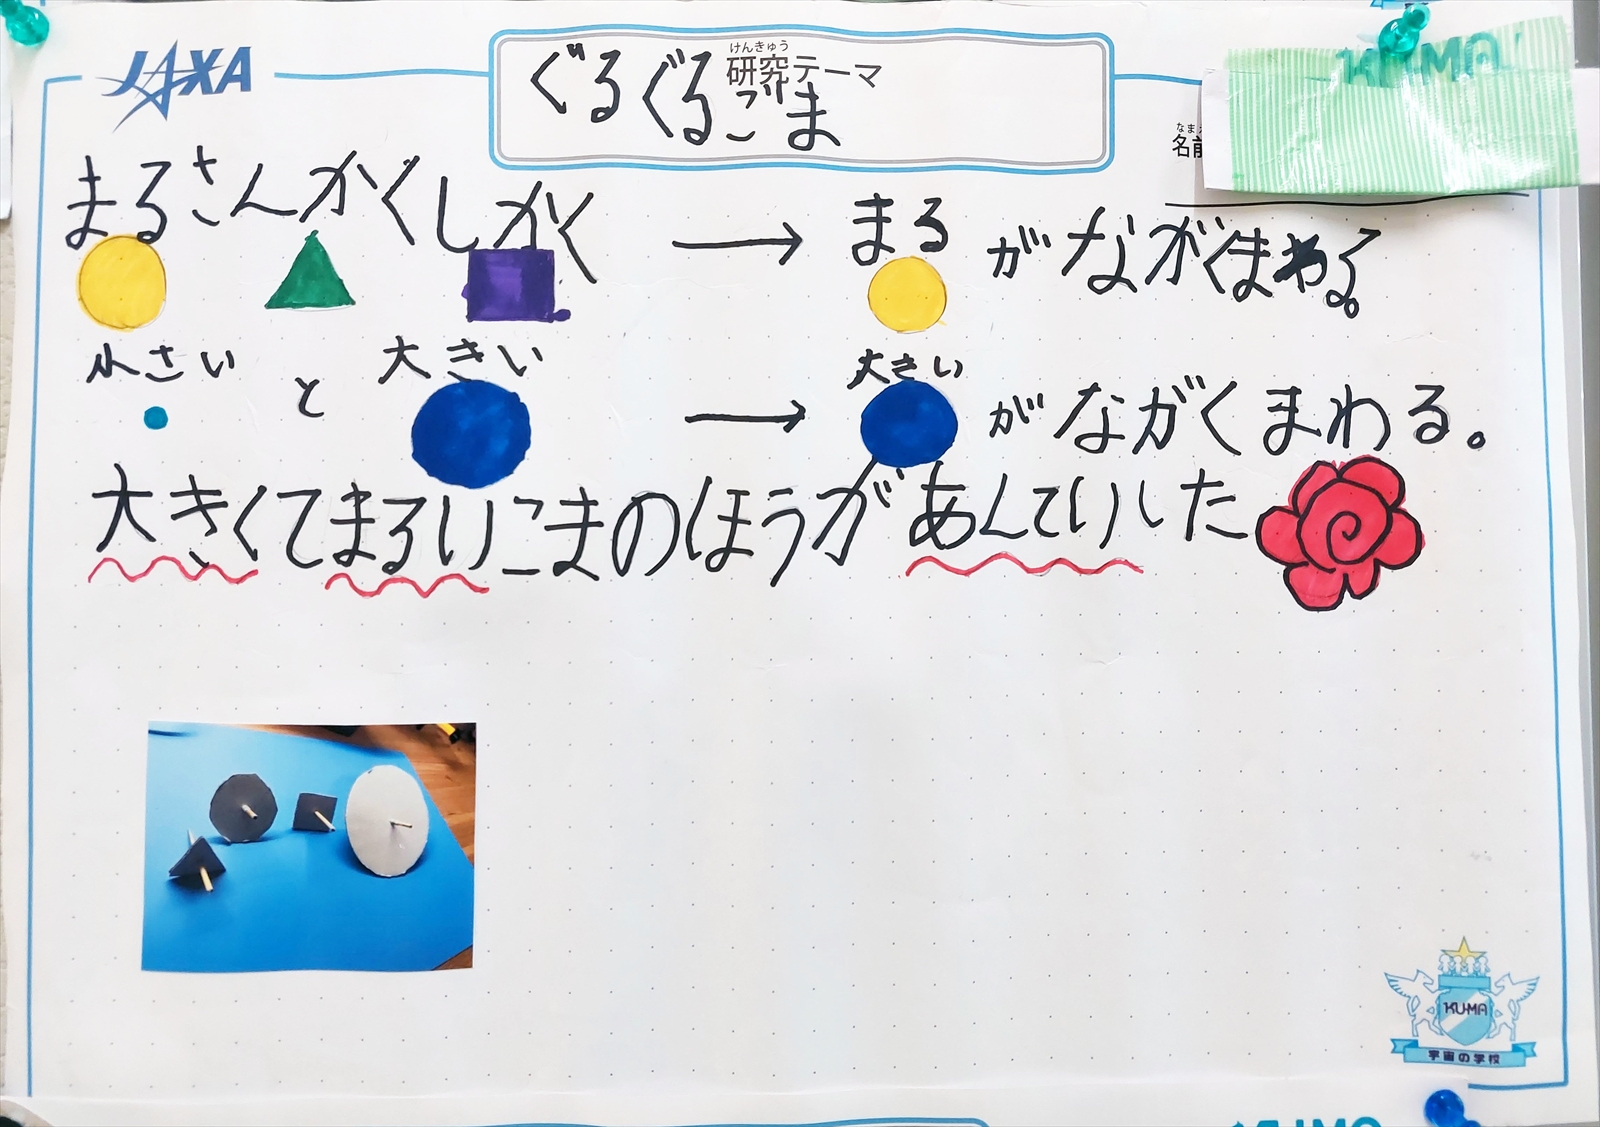 JAXA
けんきゅう
研究テーマ
ぐるぐるごま
KUMA
なまえ
名前
まるさんかくしかく → まるがながくまわる。
小さいと大きい → 大きいがながくまわる。
大きくてまるいこまのほうがあんていした
KUMA
宇宙の学校